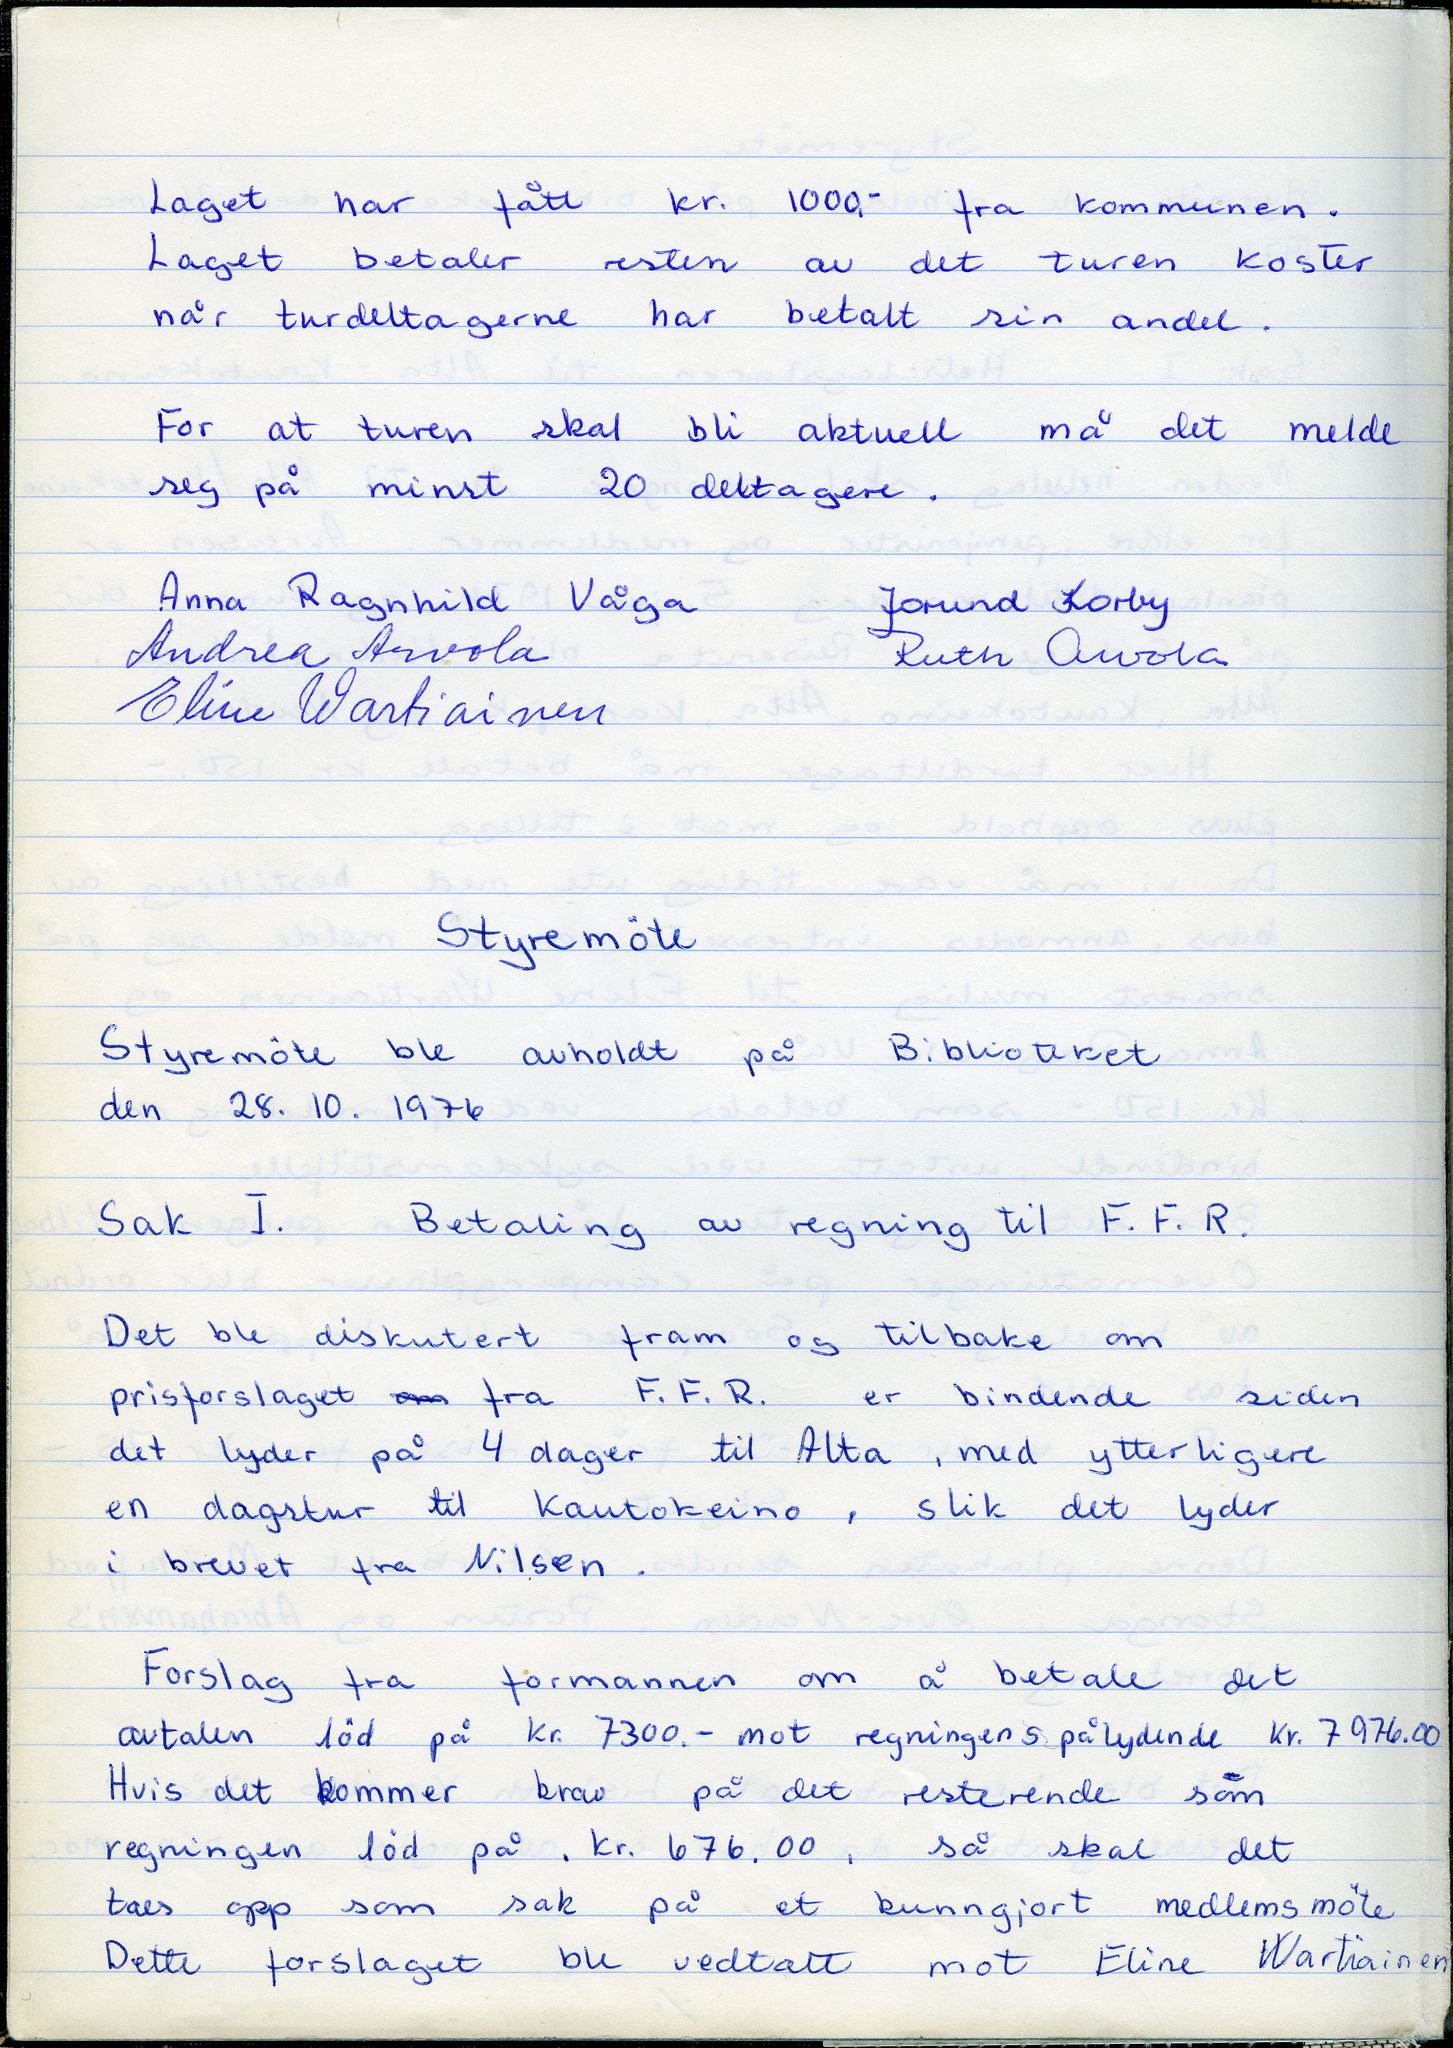 Laget har fått kr. 1000,- fra kommunen.
Laget betaler resten av det turen koster
når turdeltagerne har betalt sin andel.
For at turen skal bli aktuell må det melde
seg på minst 20 deltagere.
Anna Ragnhild Våga Jorund Korby
Andrea Arvola Ruth Arvola
Eline Wartiainen
Styremöte
Styremöte ble avholdt på Biblioteket
den 28. 10. 1976
Sak I. Betaling av regning til F. F. R.
Det ble diskutert fram og tilbake om
prisforslaget om fra F. F. R. er bindende siden
det lyder på 4 dager til Alta, med ytterligere
en dagstur til Kautokeino, slik det lyder
i brevet fra Nilsen.
Forslag fra formannen om å betale det
avtalen löd på kr. 7300.- mot regningens pålydende kr. 7976.00
Hvis det kommer krav på det resterende som
regningen löd på, kr. 676.00, så skal det
taes opp som sak på et kunngjort medlemsmöte
Dette forslaget ble vedtatt mot Eline Wartiainen